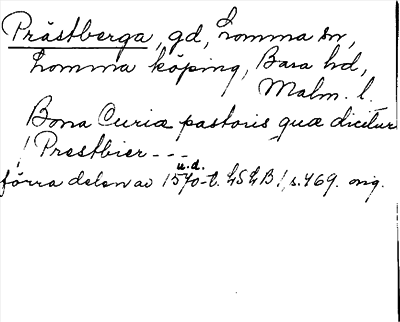 Prästberga, gd, Lomma sn,
Lomma köping, Bara hd,
Malm. l.
Bona Curiæ pastoris quæ dicitur
/ Prestbier ---
u.d.
förra delen av 1570-t. LSLB /, s. 469. orig.